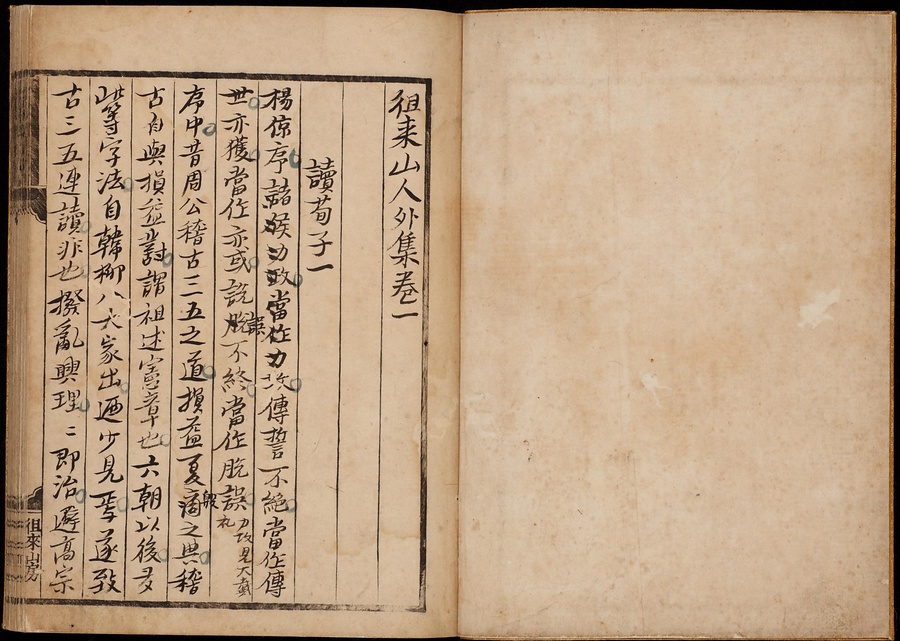 徂来山人外集巻一
讀荀子一
楊倞序諸侯力政當作力攻傳誓不絶當作傳
世亦獲當作亦或説脫誤不終當作脫誤 力攻見大戴礼
序中昔周公稽古三五之道損益夏殷之典稽
古自與損益對謂祖述憲章也六朝以後多
此等字法自韓柳八大家出迺少見焉遂致
古三五連讀非也撥亂興理〻即治避高宗
徂來山房